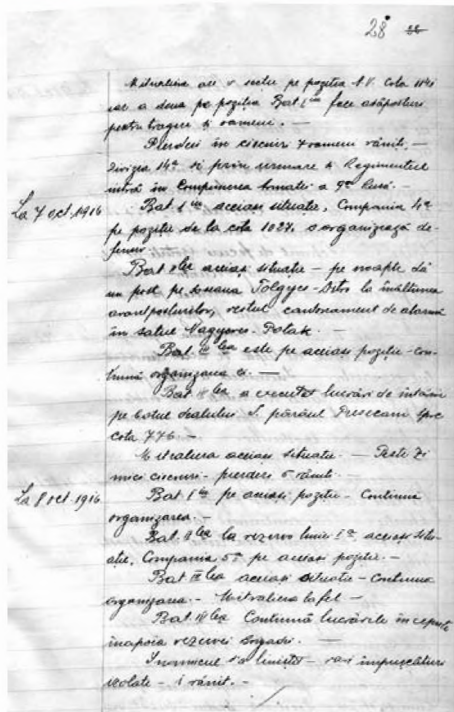 28
Mitraliera are o secție pe poziția N.V. Cota 1141
iar a doua pe poziția Bat I iu face adăposturi
pentru trăgere și oameni. —
Pierderi în ciocniri 7 oameni răniți. —
Divizia 14a și prin urmare și Regimentul
intră în Compunerea Armatei a 9a Rusă. —
La 7 oct. 1916 Bat I iu aceiași situație, Compania 4a
pe poziție de la cota 1027, organizează de-
fensiv.
Bat II lea aceiași situație — pe noapte dă
un post pe șoseaua Tolgyes-Ditro la înălțimea
avantposturilor, restul cantonament de alarmă
în satul Nagyeres-Potak. —
Bat. III lea este pe aceiași poziție — con-
tinuă organizarea ei. —
Bat IV lea a executat lucrări de întărire
pe botul dealului S. pârâul spre
cota 776 —
Mitraliera aceiași situație. — Peste zi
mici ciocniri — pierderi 5 răniți.
La 8 oct. 1916 Bat I iu pe aceiași poziție — Continuă
organizarea. —
Bat. II lea la rezerva liniei I a aceiași situ-
ație, Compania 5a pe aceiași poziție. —
Bat III lea aceiași situație — continuă
organizarea. — Mitraliera la fel —
Bat IV lea Continuă lucrările începute
înapoia rezervei brigadei. —
Inamicul liniștit — rari împușcături
izolate — 1 rănit. —